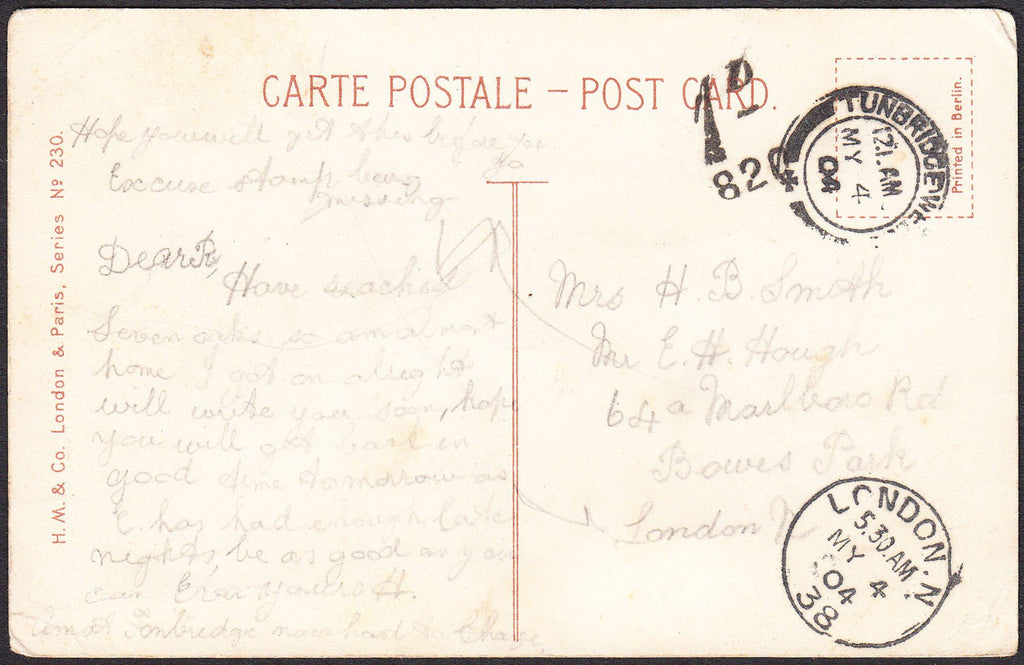 CARTE POSTALE – POST CARD.
Printed in Berlin.
H.M. & Co. London & Paris, Series Nº 230.
1D
820
TUNBRIDGE WE
12.1.AM
MY 4
04
Hope you will get this before you
go
Excuse stamp being
missing
Dear R,
Have reached
Sevenoaks so am almost
home I got on alright
will write you soon, hope
you will get back in
good time tomorrow as
E. has had enough late
nights, be as good as you
can Ever yours H.
Am at Tonbridge now had to change
Mrs H. B. Smith
Mr E. H. Hough
64a Marlboro Rd
Bowes Park
London N
LONDON.N
5.30.AM
MY 4
04
38